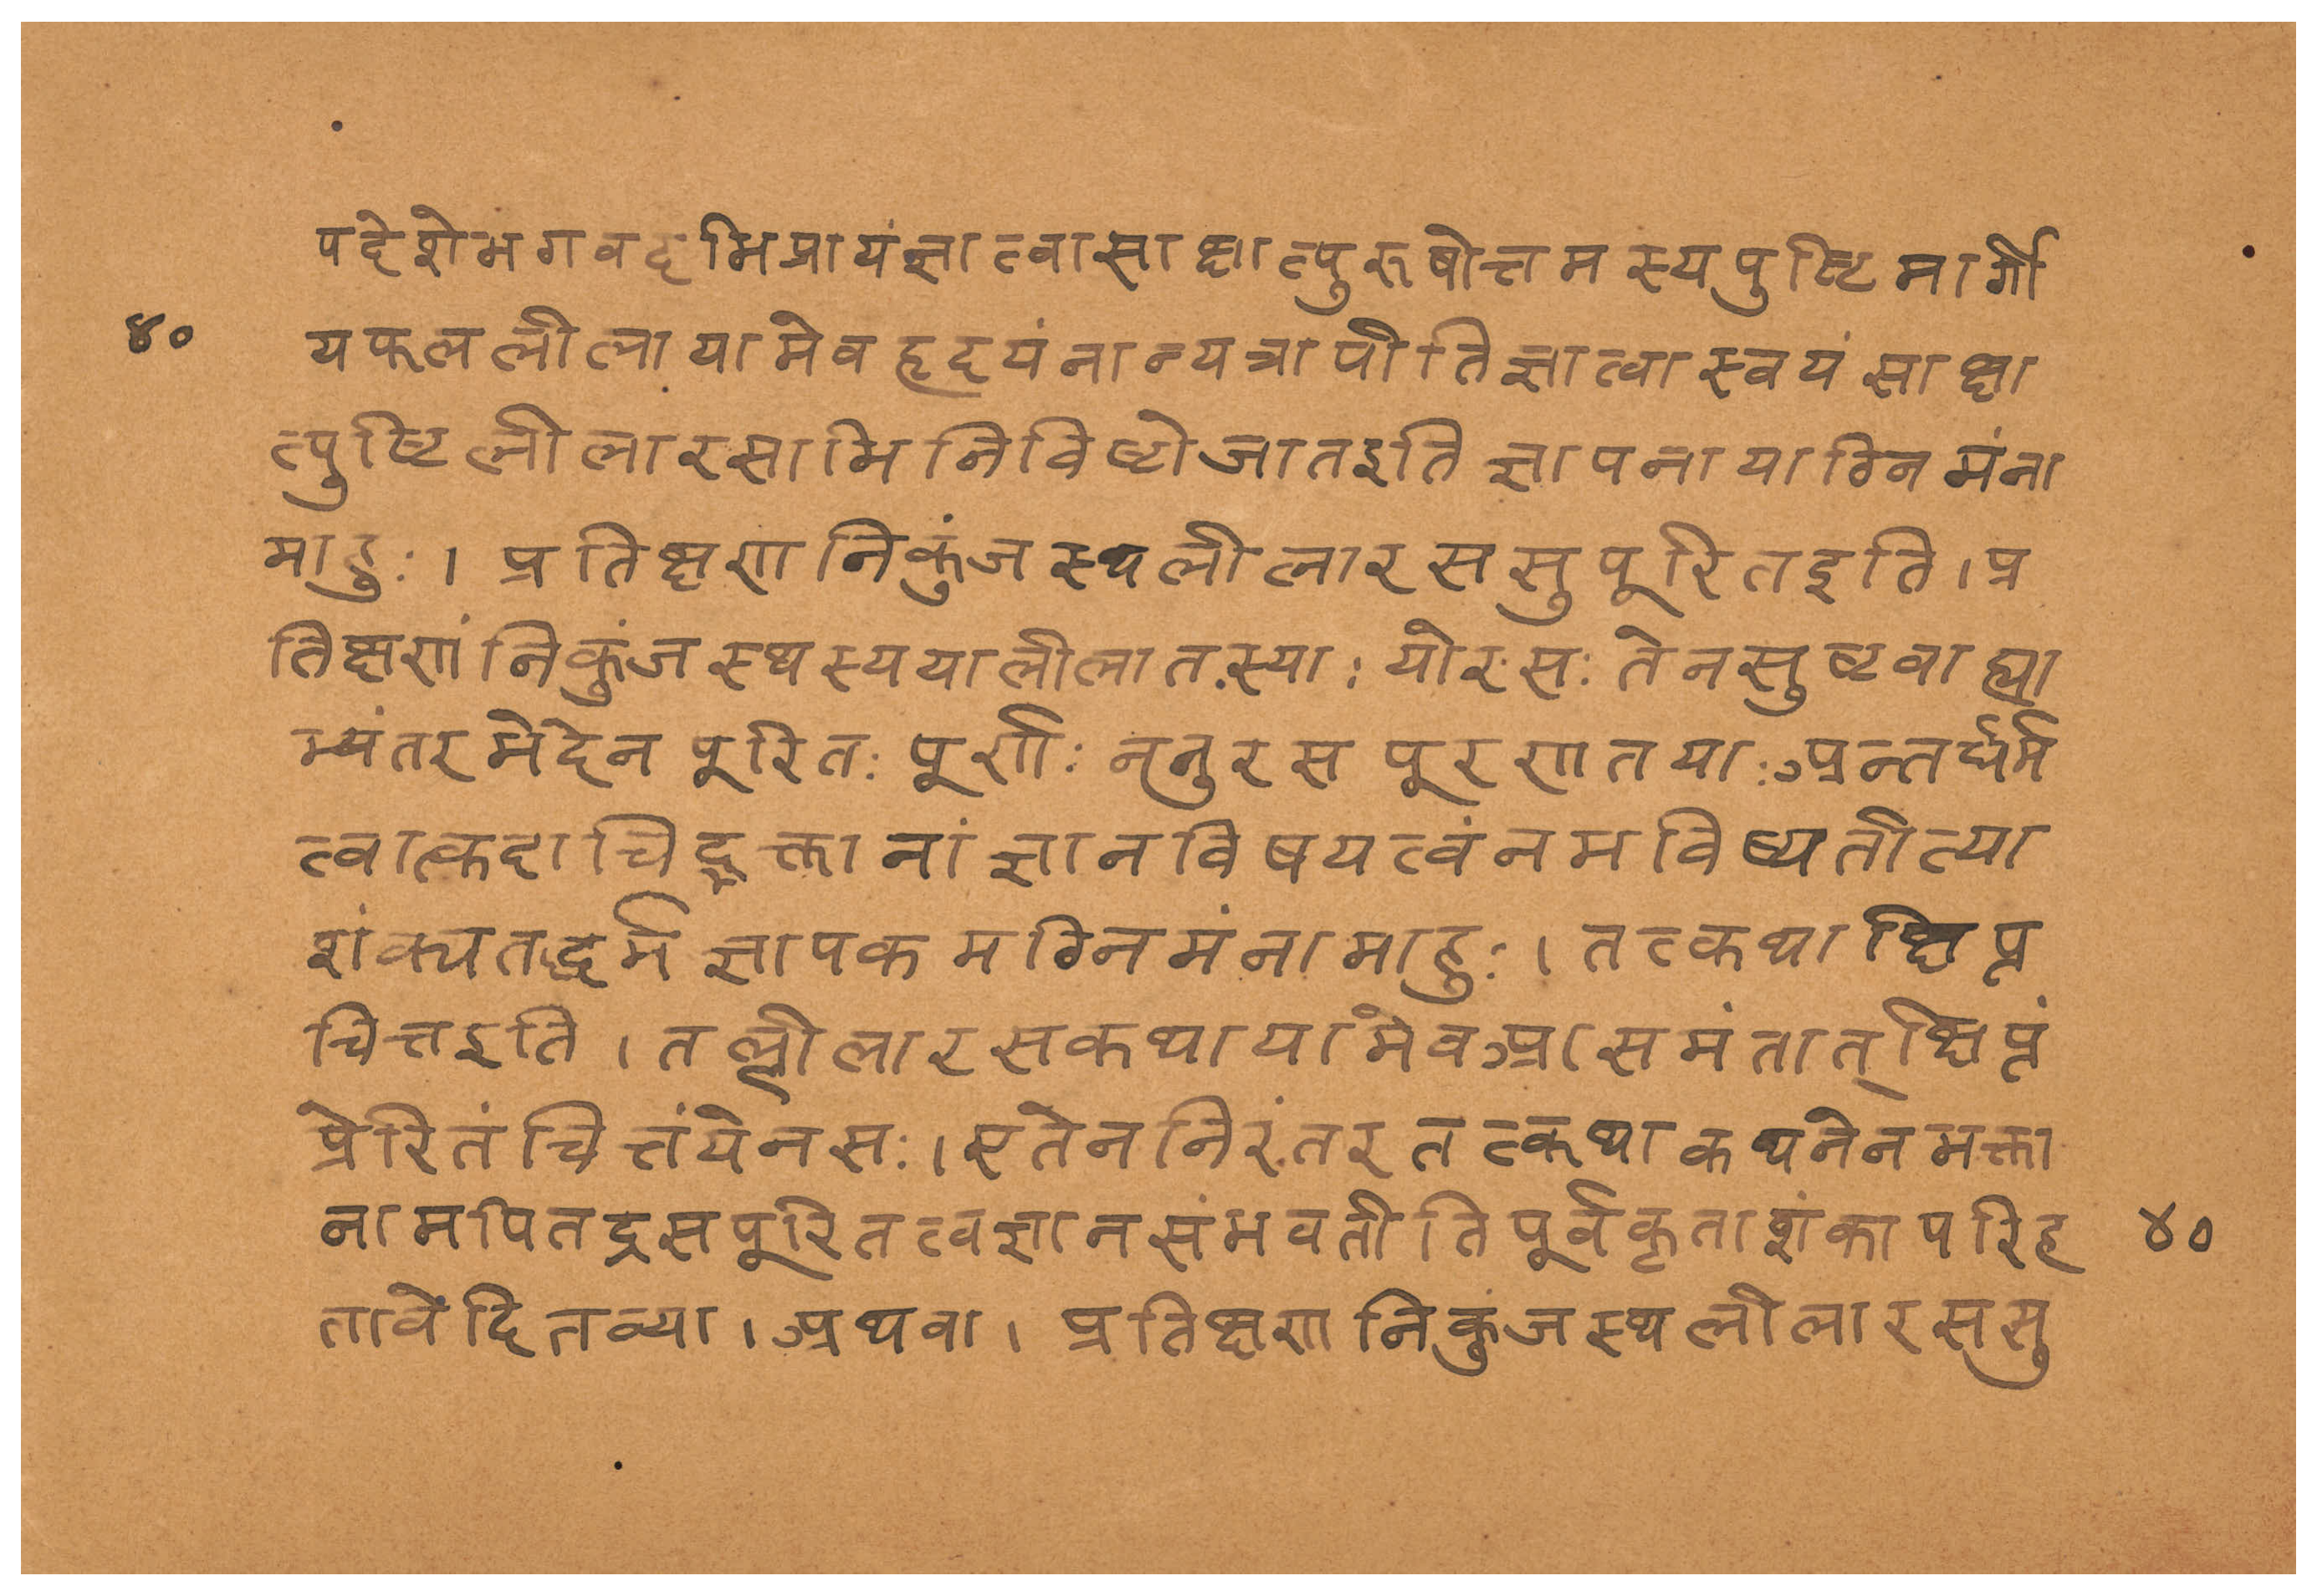 पदेशेभगवदभिप्रायंज्ञात्वासाक्षात्पुरूषोत्तमस्यपुष्टिमार्गी
४०
यफललीलायामेवहृदयंनान्यत्रापीतिज्ञात्वास्वयंसाक्षा
त्पुष्टिलीलारसाभिनिविष्टोजातइतिज्ञापनायाग्निमंना
माहुः। प्रतिक्षणनिकुंजस्थलीलारससुपूरितइति।प्र
तिक्षणंनिकुंजस्थस्ययालीलातस्याः योरसः तेनसुष्टवाह्या
भ्यंतरभेदेन पूरितः पूर्णः ननुरसपूरणतयाःअन्तर्धर्म
त्वात्कदाचिद्भक्तानांज्ञानविषयत्वंनभविष्यतीत्या
शंक्यतद्धर्मज्ञापकमग्निमंनामाहुः।तत्कथाक्षिप्त
चित्तइति।तल्लीलारसकथायामेवआसमंतात्क्षिप्तं
प्रेरितंचित्तंयेनसः।एतेननिरंतरतत्कथाकथनेनभक्ता
नामपितद्रसपूरितत्वज्ञानसंभवतीतिपूर्वकृताशंकापरिहृ
४०
तावेदितव्या।अथवा। प्रतिक्षणनिकुंजस्थलीलारससु